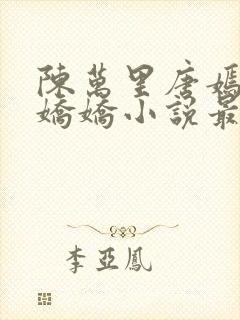 陳萬里唐嫣
嬌嬌小說最
李亞鳳